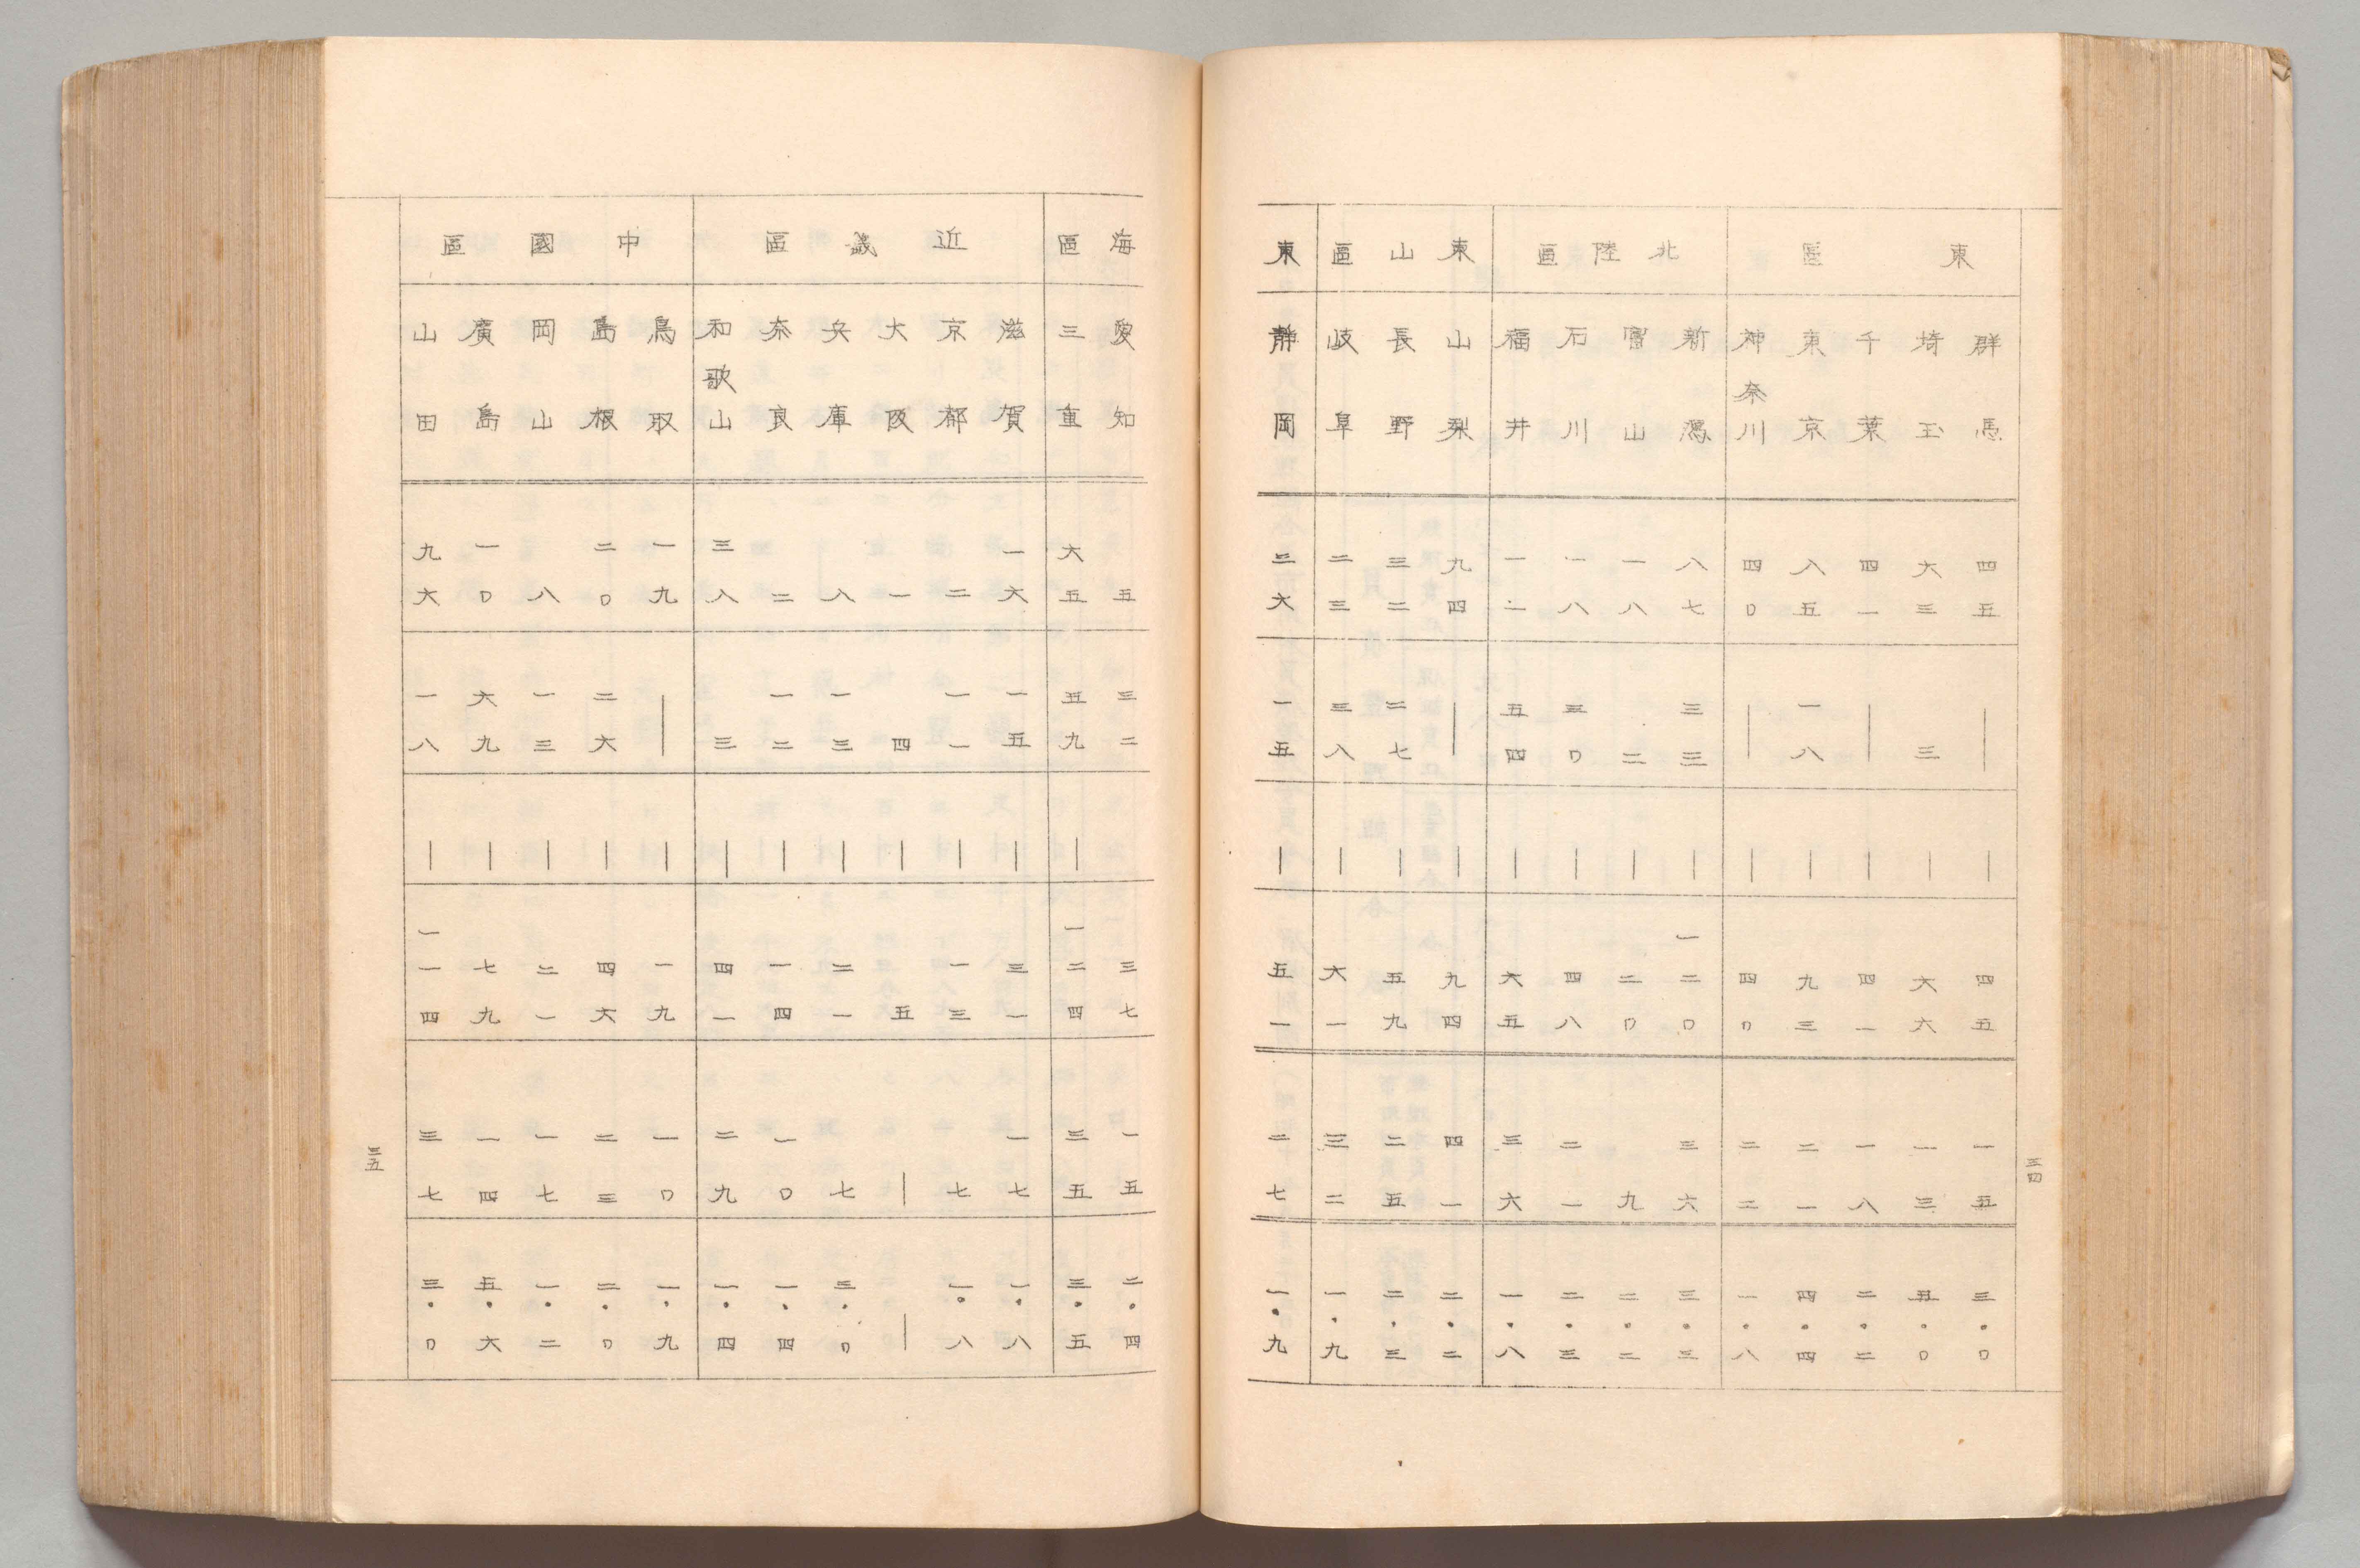 三四
東區
群馬 四五 ― ― 四五 一五 三・〇
埼玉 六三 三 ― 六六 一三 五・〇
千葉 四一 ― ― 四一 一八 二・二
東京 八五 一八 ― 九三 二一 四・四
神奈川 四〇 ― ― 四〇 二二 一・八
北陸區
新潟 八七 三三 ― 一二〇 三六 三・三
富山 一八 二 ― 二〇 九 二・二
石川 一八 三〇 ― 四八 二一 二・三
福井 一一 五四 ― 六五 三六 一・八
東山區
山梨 九四 ― ― 九四 四一 二・二
長野 三二 二七 ― 五九 二五 二・三
岐阜 二三 三八 ― 六一 三二 一・九
東
靜岡 三六 一五 ― 五一 二七 一・九
海區
愛知 五 三二 三七 一五 二・四
三重 六五 五九 ― 一二四 三五 三・五
近畿區
滋賀 一六 一五 ― 三一 一七 一・八
京都 二 一一 ― 一三 七 一・八
大阪 一 四 ― 五 ― ―
兵庫 八 一三 ― 二一 七 三・〇
奈良 二 一二 ― 一四 一〇 一・四
和歌山 三八 三 ― 四一 二九 一・四
中國區
鳥取 一九 ― ― 一九 一〇 一・九
島根 二〇 二六 ― 四六 二三 二・〇
岡山 八 一三 ― 二一 一七 一・二
廣島 一〇 六九 ― 七九 一四 五・六
山田 九六 一八 ― 一一四 三七 三・〇
三五